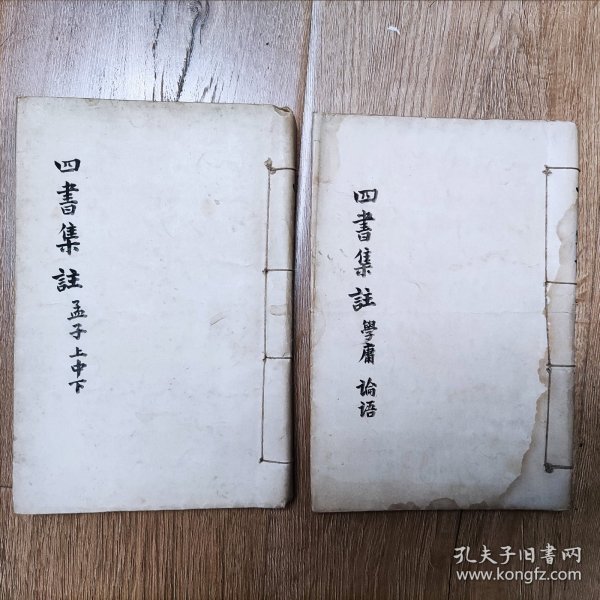 四書集註 孟子上中下
四書集註 學庸 论语
孔夫子旧書网
www.kongfz.com